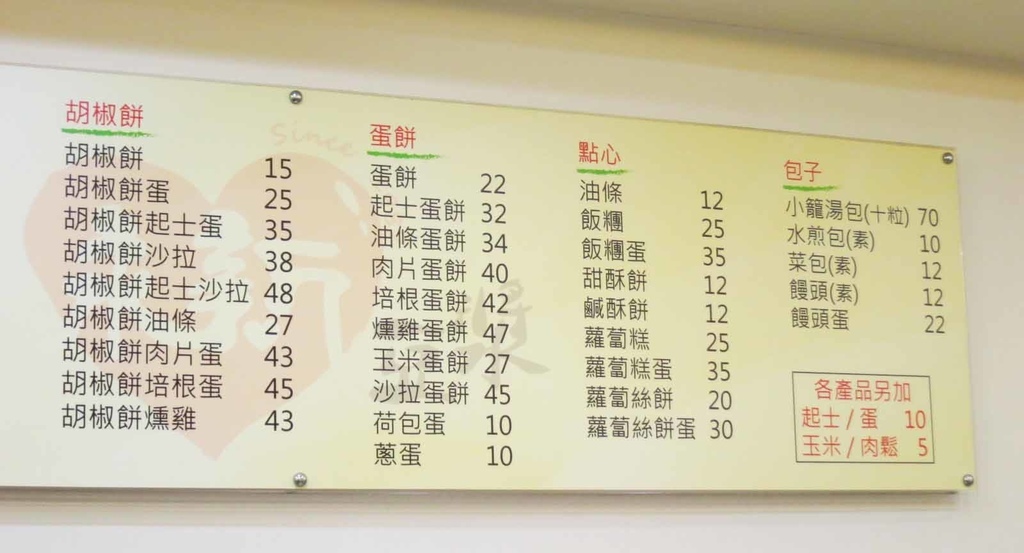 since
胡椒餅
胡椒餅 15
胡椒餅蛋 25
胡椒餅起士蛋 35
胡椒餅沙拉 38
胡椒餅起士沙拉 48
胡椒餅油條 27
胡椒餅肉片蛋 43
胡椒餅培根蛋 45
胡椒餅燻雞 43
蛋餅
蛋餅 22
起士蛋餅 32
油條蛋餅 34
肉片蛋餅 40
培根蛋餅 42
燻雞蛋餅 47
玉米蛋餅 27
沙拉蛋餅 45
荷包蛋 10
蔥蛋 10
點心
油條 12
飯糰 25
飯糰蛋 35
甜酥餅 12
鹹酥餅 12
蘿蔔糕 25
蘿蔔糕蛋 35
蘿蔔絲餅 20
蘿蔔絲餅蛋 30
包子
小籠湯包(十粒) 70
水煎包(素) 10
菜包(素) 12
饅頭(素) 12
饅頭蛋 22
各產品另加
起士/蛋 10
玉米/肉鬆 5